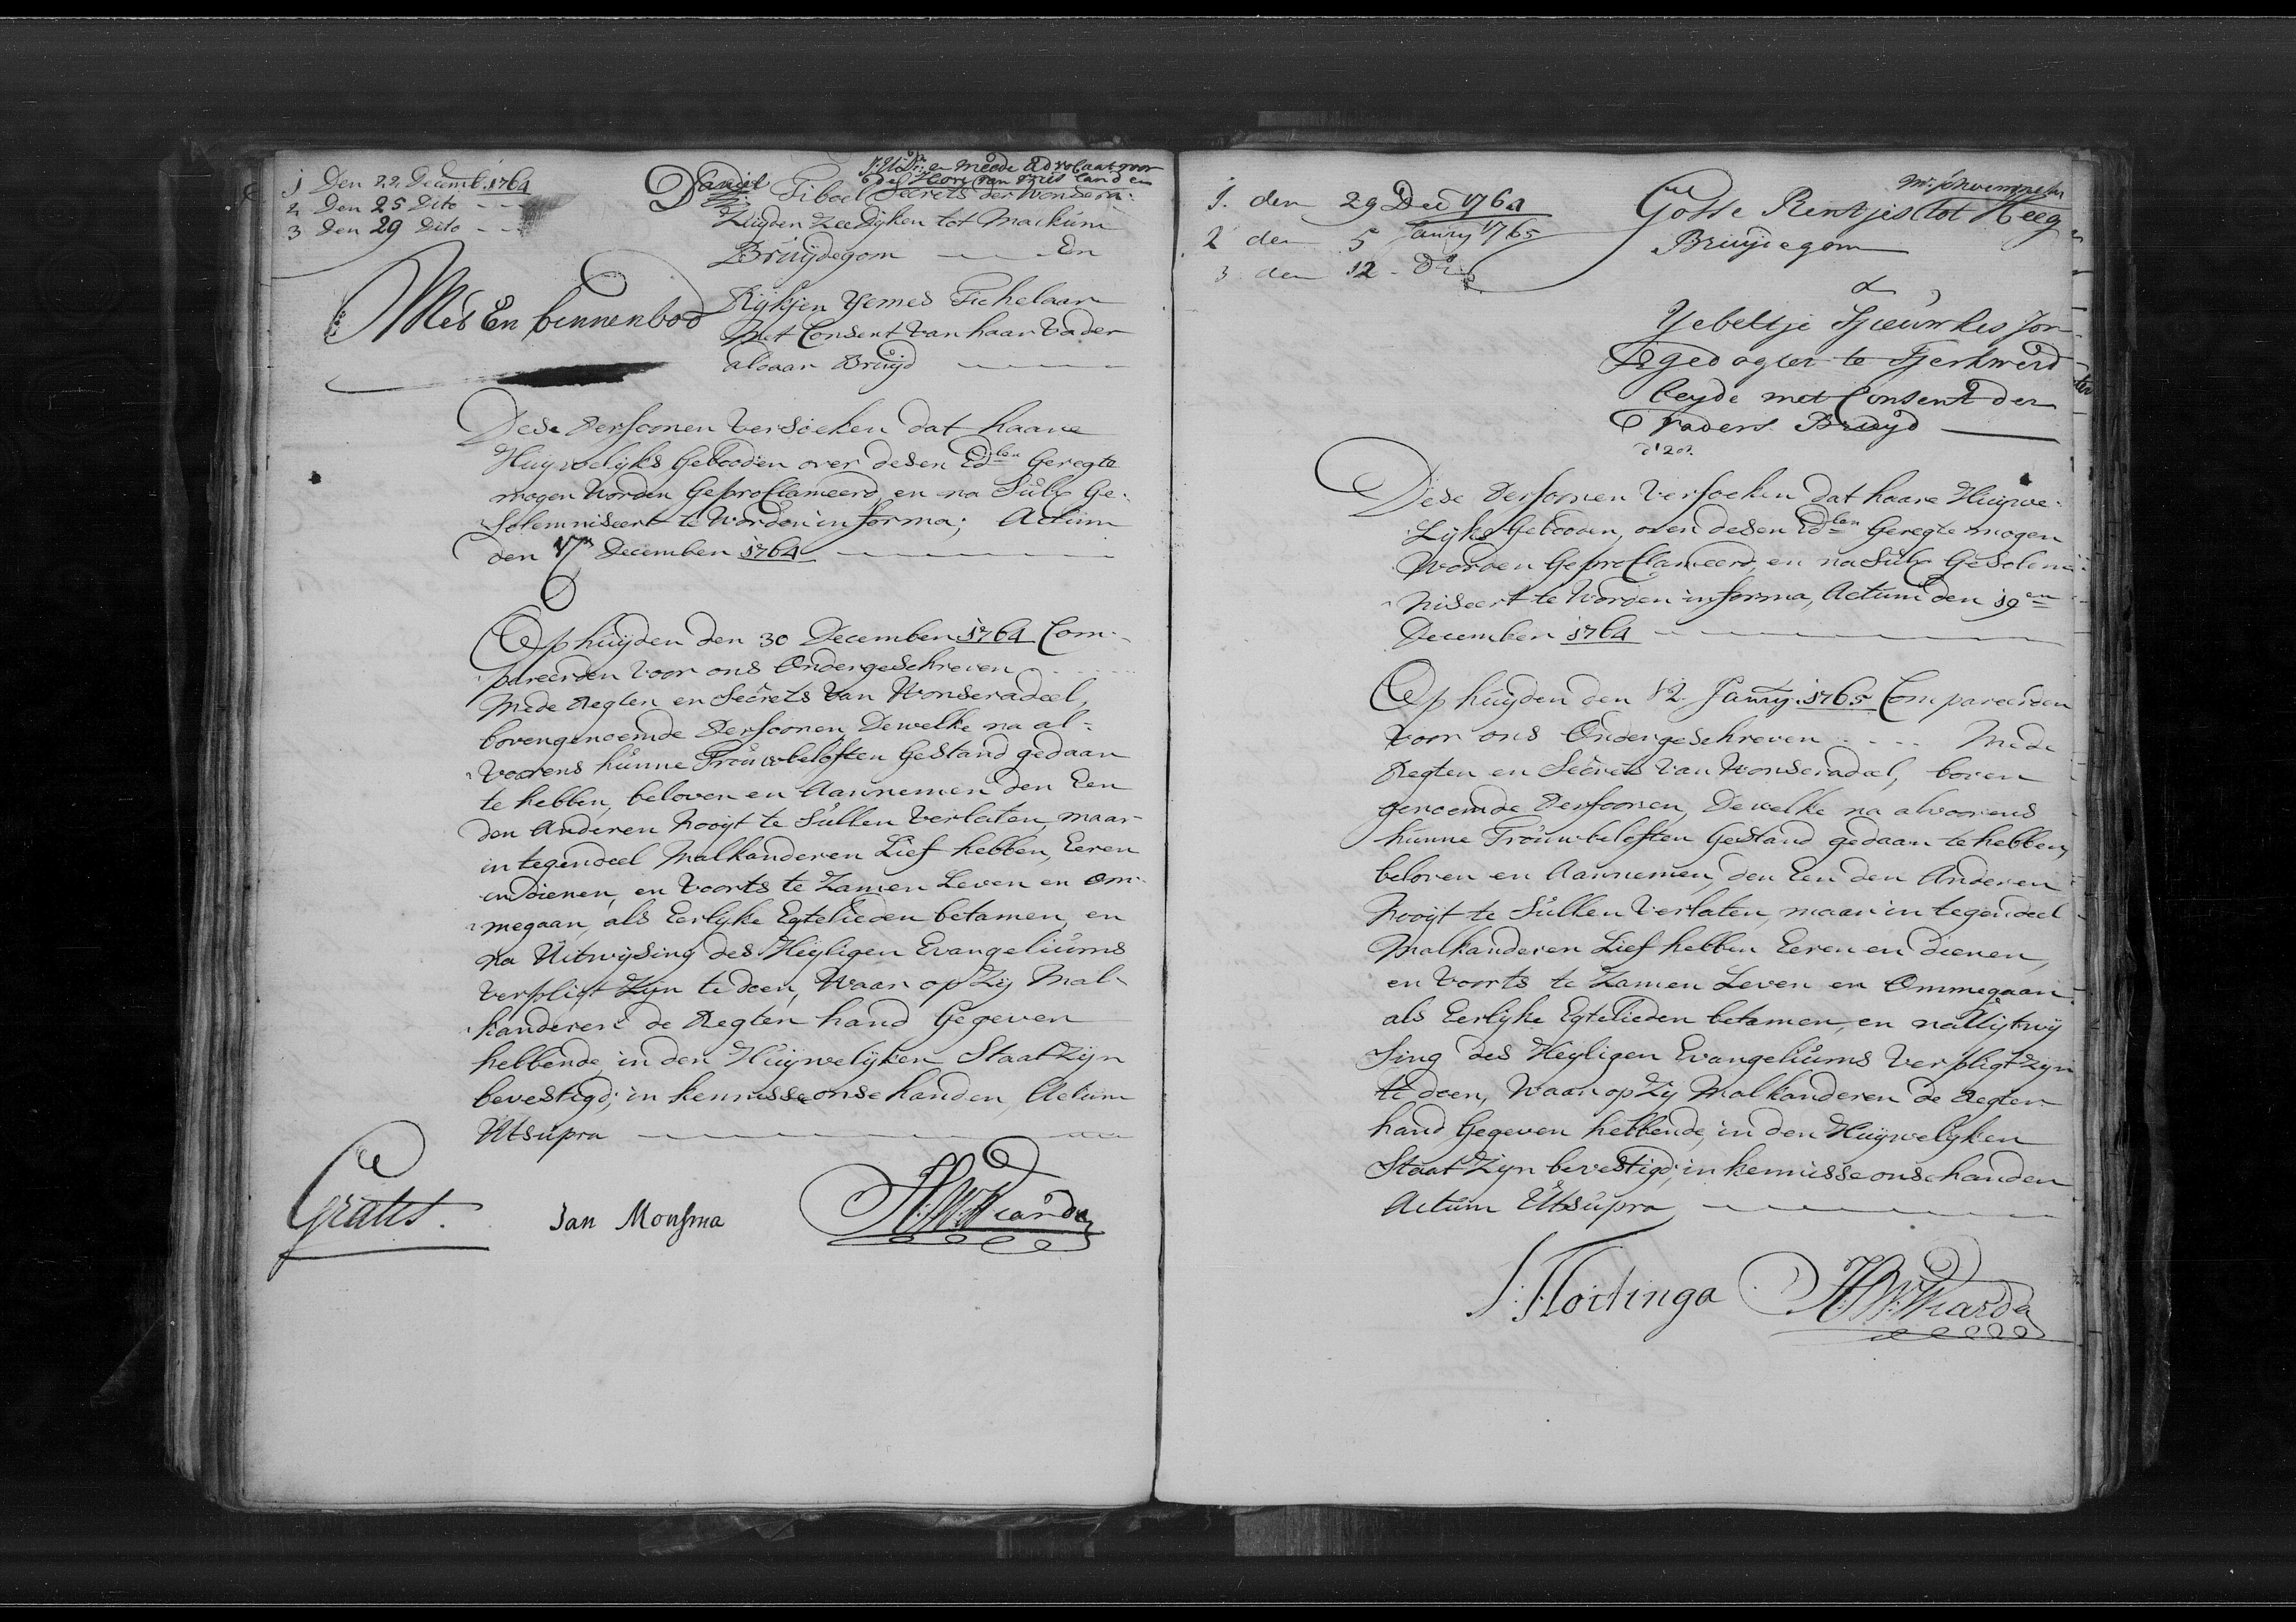 1 Den 22 Decemb. 1764
2 Den 25 Dito
3 Den 29 Dito
Mede Advocaat voor
den Hove van Friesland en
Daniel Tiboel Secrets der Wonsera.
Zuyden Zee Dyken tot Mackum
Bruydegom En
Met En binnenbod
Rykjen Yemes Tichelaar
Met Consent van haar Vader
aldaar Bruyd
Dese Persoonen Versoeken dat haare
Huywelyks Gebooden over desen Edlen Geregte
mogen Worden Geproclameerd, en na Sulx Ge-
Solemniseert te Worden in forma; Actum
den 17 December 1764
Op huyden den 30 December 1764 Com-
pareerden Voor ons Ondergeschreven
Mede Regter en Secrets Van Wonseradeel,
bovengenoemde Persoonen, Dewelke na al-
Voorens hunne Trouwbeloften Gestand gedaan
te hebben, beloven en Aannemen den Een
den Anderen Nooyt te Sullen Verlaten, maar
in tegendeel Malkanderen Lief hebben, Eeren
en dienen, en Voorts te Zamen Leven en om-
megaan, als Eerlyke Egtelieden betamen, en
na Uitwysing des Heyligen Evangeliums
Verpligt Zyn te doen, Waar op Zy Mal-
kanderen de Regter hand Gegeven
hebbende, in den Huywelyken Staat Zyn
bevestigd; in kennisse onse handen, Actum
Utsupra
Gratis.
Jan Monsma
H:W:Wiarda
1. den 29 Dec 1764
2 den 5 Janry 1765
3 den 12 Do
Gosse Rentjes tot Heeg
Bruydegom
&
Yebeltje Sjieuwkes Jon-
gedogter te Tjerkwerd
beyde met Consent der
Vaders Bruyd
Dese Persoonen Versoeken dat haare Huywe-
Lyks Gebooden, over desen Edlen Geregte mogen
Worden Geproclameerd, en na Sulx GeSolem-
niseert te Worden in forma, Actum den 19en
December 1764
Op huyden den 12 Janry. 1765 Compareerden
Voor ons Ondergeschreven Mede
Regter en Secrets Van Wonseradeel, boven
genoemde Persoonen, Dewelke na alvoorens
hunne Trouwbeloften Gestand gedaan te hebben,
beloven en Aannemen, den Een den Anderen
Nooyt te Sullen Verlaten, maar in tegendeel
Malkanderen Lief hebben Eeren en dienen,
en Voorts te Zamen Leven en Ommegaan
als Eerlyke Egtelieden betamen, en na Uytwy
Sing des Heyligen Evangeliums Verpligt zyn
te doen, Waar op Zy Malkanderen de Regter
hand Gegeven hebbende, in den Huywelyken
Staat Zyn bevestigd; in kennisse onse handen
Actum Utsupra
S: Hoitinga
H:W:Wiarda